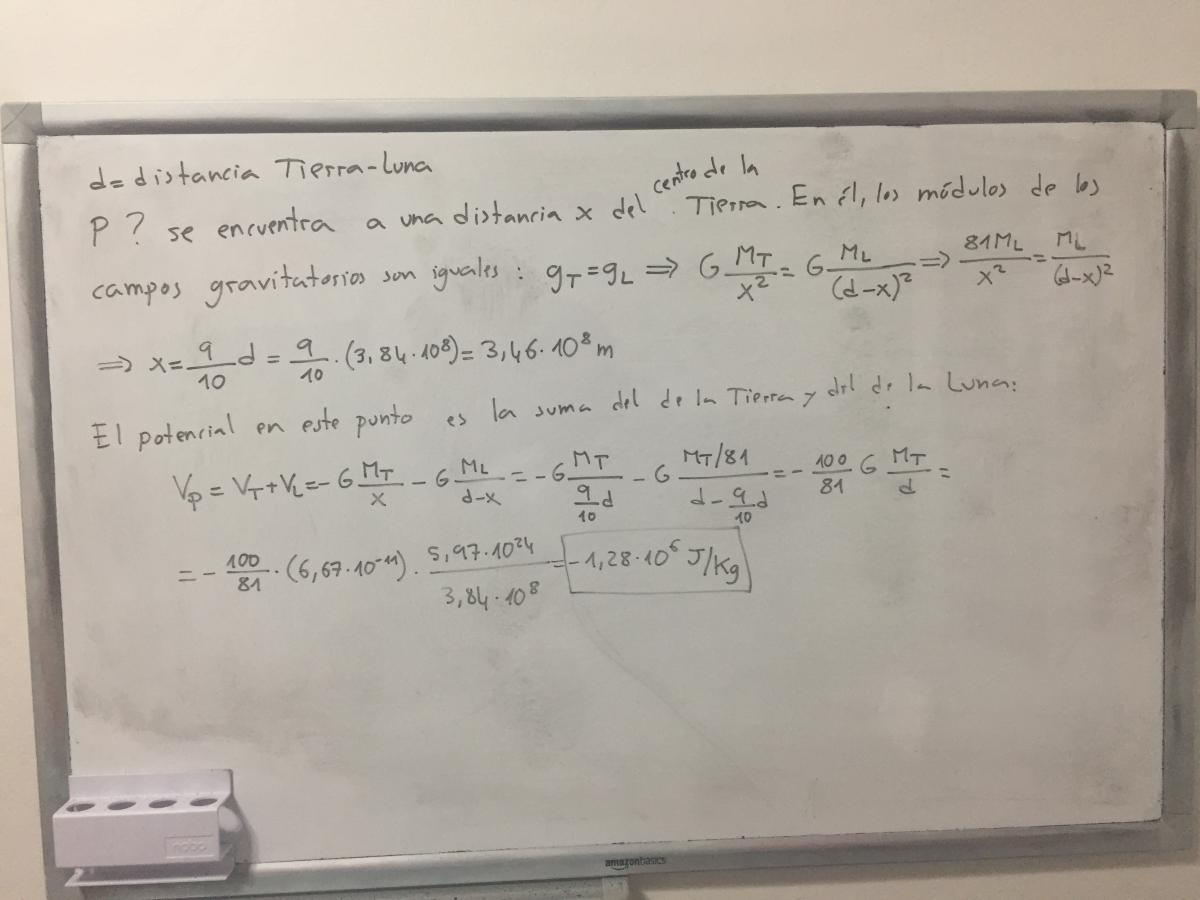 d= distancia Tierra-Luna
P ? se encuentra a una distancia x del centro de la Tierra. En él, los módulos de los
campos gravitatorios son iguales: g_T = g_L ⟹ G M_T/x² = G M_L/(d-x)² ⟹ 81M_L/x² = M_L/(d-x)²
⟹ x = 9/10 d = 9/10 · (3,84·10⁸) = 3,46·10⁸ m
El potencial en este punto es la suma del de la Tierra y del de la Luna:
V_P = V_T + V_L = - G M_T/x - G M_L/d-x = - G M_T/(9/10 d) - G (M_T/81)/(d - 9/10 d) = - 100/81 G M_T/d =
= - 100/81 · (6,67·10⁻¹¹) · 5,97·10²⁴/3,84·10⁸ = -1,28·10⁶ J/Kg
nobo
amazonbasics